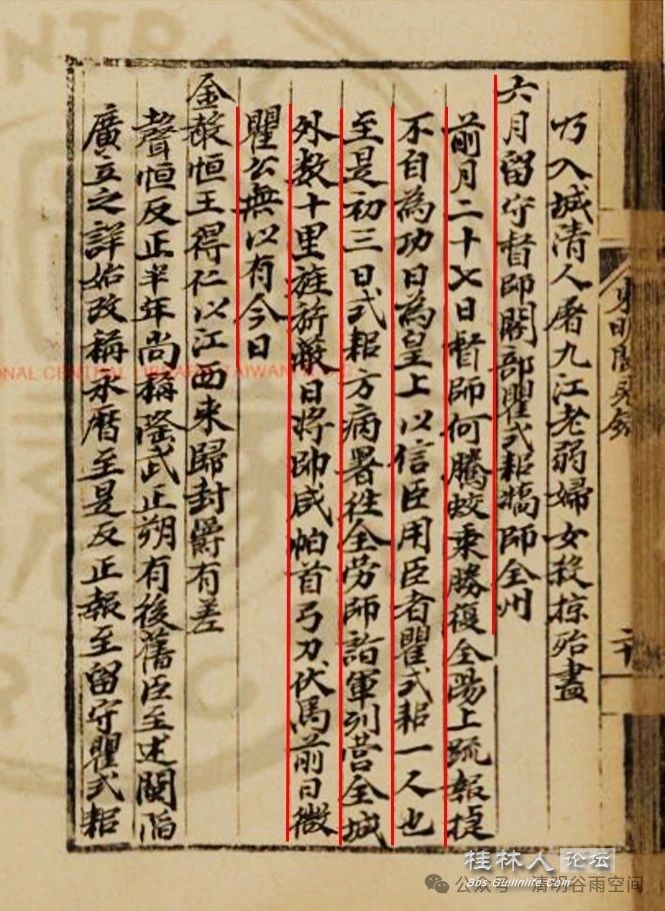 乃入城清人屠九江老弱婦女殺掠殆盡
六月留守督師閣部瞿式耜犒師全州
前月二十七日督師何騰蛟乘勝復全陽上疏報捷
不自為功曰為皇上以信臣用臣者瞿式耜一人也
至是初三日式耜方病署徃全勞師諸軍列營全城
外数十里旌旂蔽日將帥咸帕首弓刀伏馬前曰微
瞿公無以有今日
金聲恒王得仁以江西来歸封爵有差
聲恒反正半年尚稱隆武正朔有後舊臣至述閩陷
廣立之詳始改稱永曆至是反正報至留守瞿式耜
ONAL CENTRAL LIBRARY,TAIWAN
桂林人论坛
Bbs.Guilinlife.Com
公众号 · 清明谷雨空间